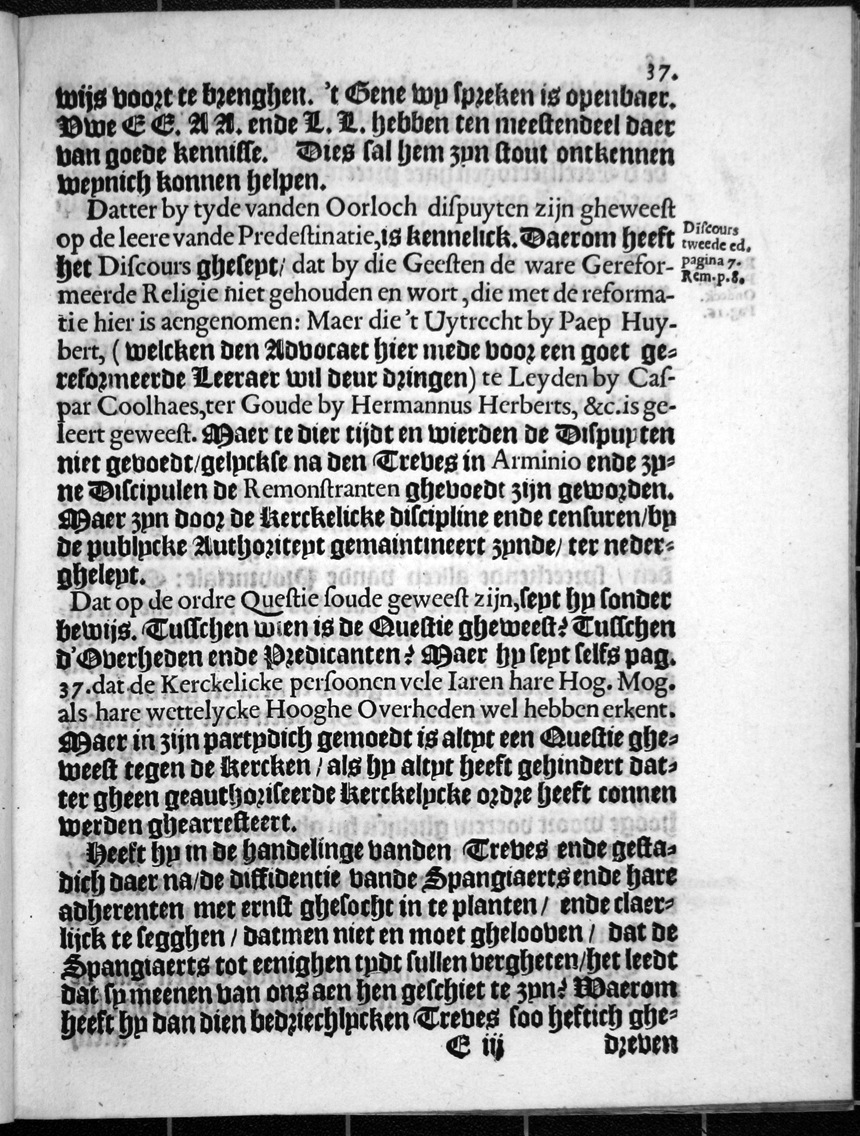 37.
wijs voort te brenghen. 't Gene wy spreken is openbaer.
Vwe E E. A A. ende L. L. hebben ten meestendeel daer
van goede kennisse. Dies sal hem zyn stout ontkennen
weynich konnen helpen.
Datter by tyde vanden Oorloch dispuyten zijn gheweest
op de leere vande Predestinatie, is kennelick. Daerom heeft
het Discours gheseyt/ dat by die Geesten de ware Gerefor-
meerde Religie niet gehouden en wort, die met de reforma-
tie hier is aengenomen: Maer die 't Uytrecht by Paep Huy-
bert, (welcken den Advocaet hier mede voor een goet ge-
reformeerde Leeraer wil deur dringen) te Leyden by Cas-
par Coolhaes, ter Goude by Hermannus Herberts, &c. is ge-
leert geweest. Maer te dier tijdt en wierden de Dispuyten
niet gevoedt/ gelyckse na den Treves in Arminio ende zy-
ne Discipulen de Remonstranten ghevoedt zijn geworden.
Maer zyn door de Kerckelicke discipline ende censuren/ by
de publycke Authoriteyt gemaintineert zynde/ ter neder-
gheleyt.
Dat op de ordre Questie soude geweest zijn, seyt hy sonder
bewijs. Tusschen wien is de Questie gheweest? Tusschen
d'Overheden ende Predicanten? Maer hy seyt selfs pag.
37. dat de Kerckelicke persoonen vele Iaren hare Hog. Mog.
als hare wettelycke Hooghe Overheden wel hebben erkent.
Maer in zijn partydich gemoedt is altyt een Questie ghe-
weest tegen de Kercken / als hy altyt heeft gehindert dat-
ter gheen geauthoriseerde Kerckelycke ordre heeft connen
werden ghearresteert.
Heeft hy in de handelinge vanden Treves ende gesta-
dich daer na/ de diffidentie vande Spangiaerts ende hare
adherenten met ernst ghesocht in te planten / ende claer-
lijck te segghen / datmen niet en moet ghelooven / dat de
Spangiaerts tot eenighen tydt sullen vergheten/ het leedt
dat sy meenen van ons aen hen geschiet te zyn? Waerom
heeft hy dan dien bedriechlycken Treves soo heftich ghe-
E iij dreven
Discours
tweede ed.
pagina 7.
Rem. p. 8.